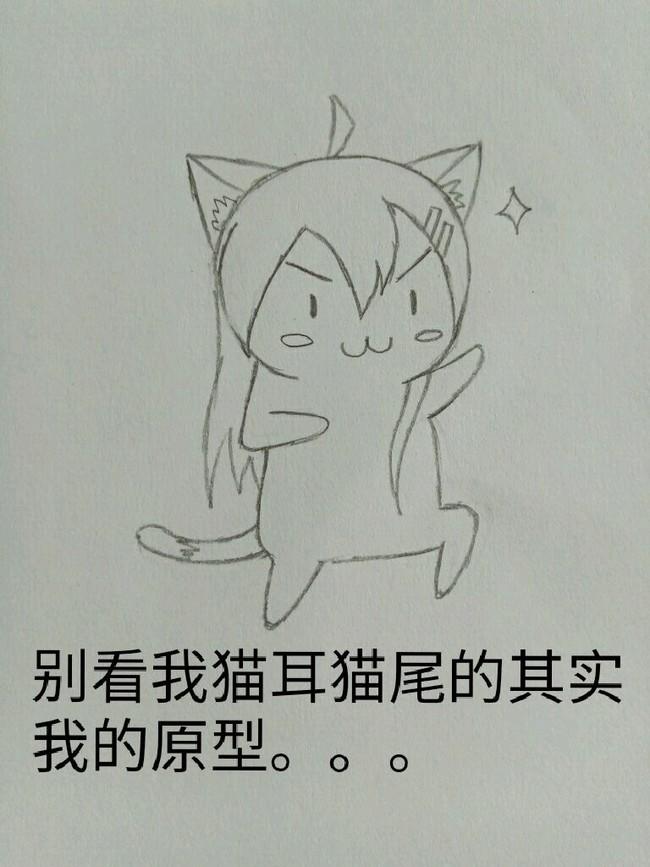 别看我猫耳猫尾的其实
我的原型。。。